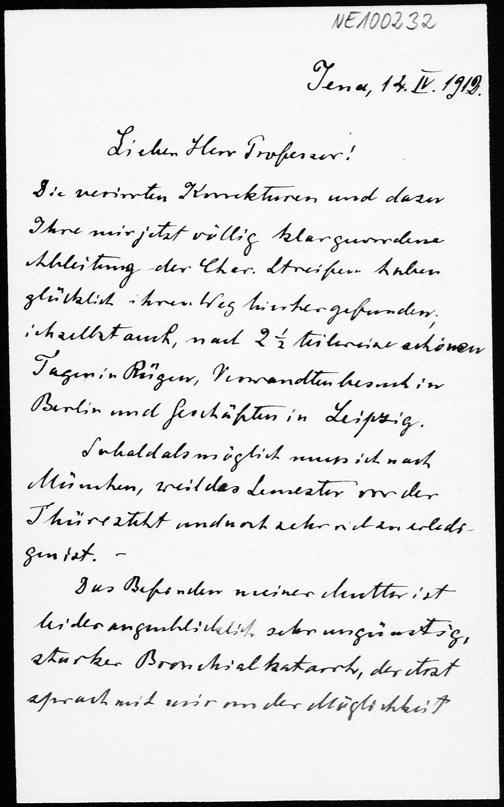 NE100232
Jena, 12. IV. 1912.
Lieber Herr Professor!
Die verirrten Korrekturen und dazu
Ihre mir jetzt völlig klargewordene
Ableitung der Char. Streifen haben
glücklich ihren Weg hierher gefunden,
ich selbst auch, nach 2 ½ teilweise schönen
Tagen in Rügen, Verwandtenbesuch in
Berlin und Geschäften in Leipzig.
Sobald als möglich muss ich nach
München, weil das Semester vor der
Thüre steht und noch sehr viel zu erledi-
gen ist. –
Das Befinden meiner Mutter ist
leider augenblicklich sehr ungünstig,
starker Bronchialkatarrh, der Arzt
sprach mit mir von der Möglichkeit